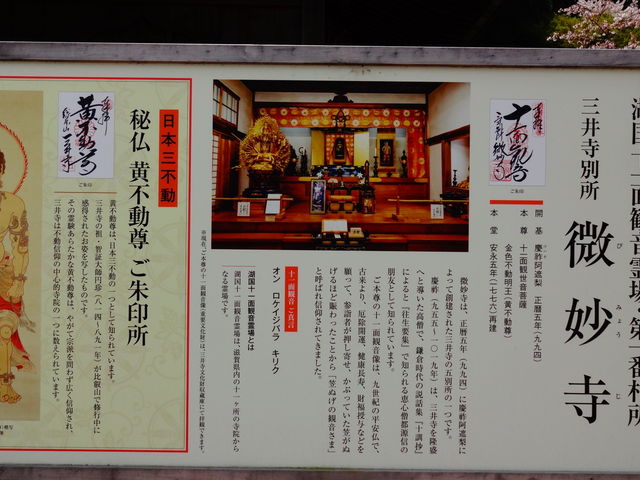 湖国十一面観音霊場・第一番札所
三井寺別所
微妙寺
びみょうじ
ご朱印
開基 慶祚阿遮梨 正暦五年(九九四)
本尊 十一面観世音菩薩
金色不動明王(黄不動尊)
本堂 安永五年(一七七六)再建
微妙寺は、正暦五年(九九四)に慶祚阿遮梨に
よって創建された三井寺の五別所の一つです。
慶祚(九五五-一〇一九年)は、三井寺を隆盛
へと導いた高僧で、鎌倉時代の説話集「十訓抄」
によると「往生要集」で知られる恵心僧都源信の
朋友として知られています。
ご本尊の十一面観音像は、九世紀の平安仏で、
古来より、厄除開運、健康長寿、財福授与などを
願って、参詣者が押し寄せ、かぶっていた笠がぬ
げるほど賑わったことから「笠ぬげの観音さま」
と呼ばれ信仰されてきました。
十一面観音 ご真言
オン ロケイジバラ キリク
湖国十一面観音霊場とは
湖国十一面観音霊場は、滋賀県内の十一ヶ所の寺院から
なる霊場です。
※現在、ご本尊の十一面観音像(重要文化財)は三井寺文化財収蔵庫にて拝観できます。
日本三不動
秘仏 黄不動尊 ご朱印所
ご朱印
黄不動尊は、日本三不動の一つとして知られています。
三井寺の祖・智証大師円珍(八一四～八九一年)が比叡山で修行中に
感得されたお姿を写したもので、
その霊験あらたかな黄不動尊は、やがて宗派を問わず広く信仰され、
三井寺は不動信仰の中心的寺院の一つに数えられています。